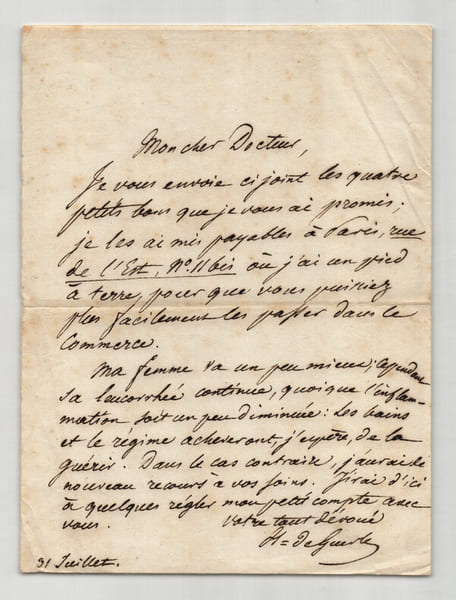 Mon cher Docteur,
Je vous envoie ci joint les quatre
petits bons que je vous ai promis;
je les ai mis payables à Paris, rue
de l'Est, No. 11 bis où j'ai un pied
à terre, pour que vous puissiez
plus facilement les passer dans le
commerce.
Ma femme va un peu mieux; cependant
sa leucorrhée continue, quoique l'inflam-
mation soit un peu diminuée: les bains
et le régime acheveront, j'espère, de la
guérir. Dans le cas contraire, j'aurai de
nouveau recours a vos soins. J'irai d'ici
à quelques régler mon petit compte avec
vous. Votre tout dévoué
H = de Guerle
31 Juillet.